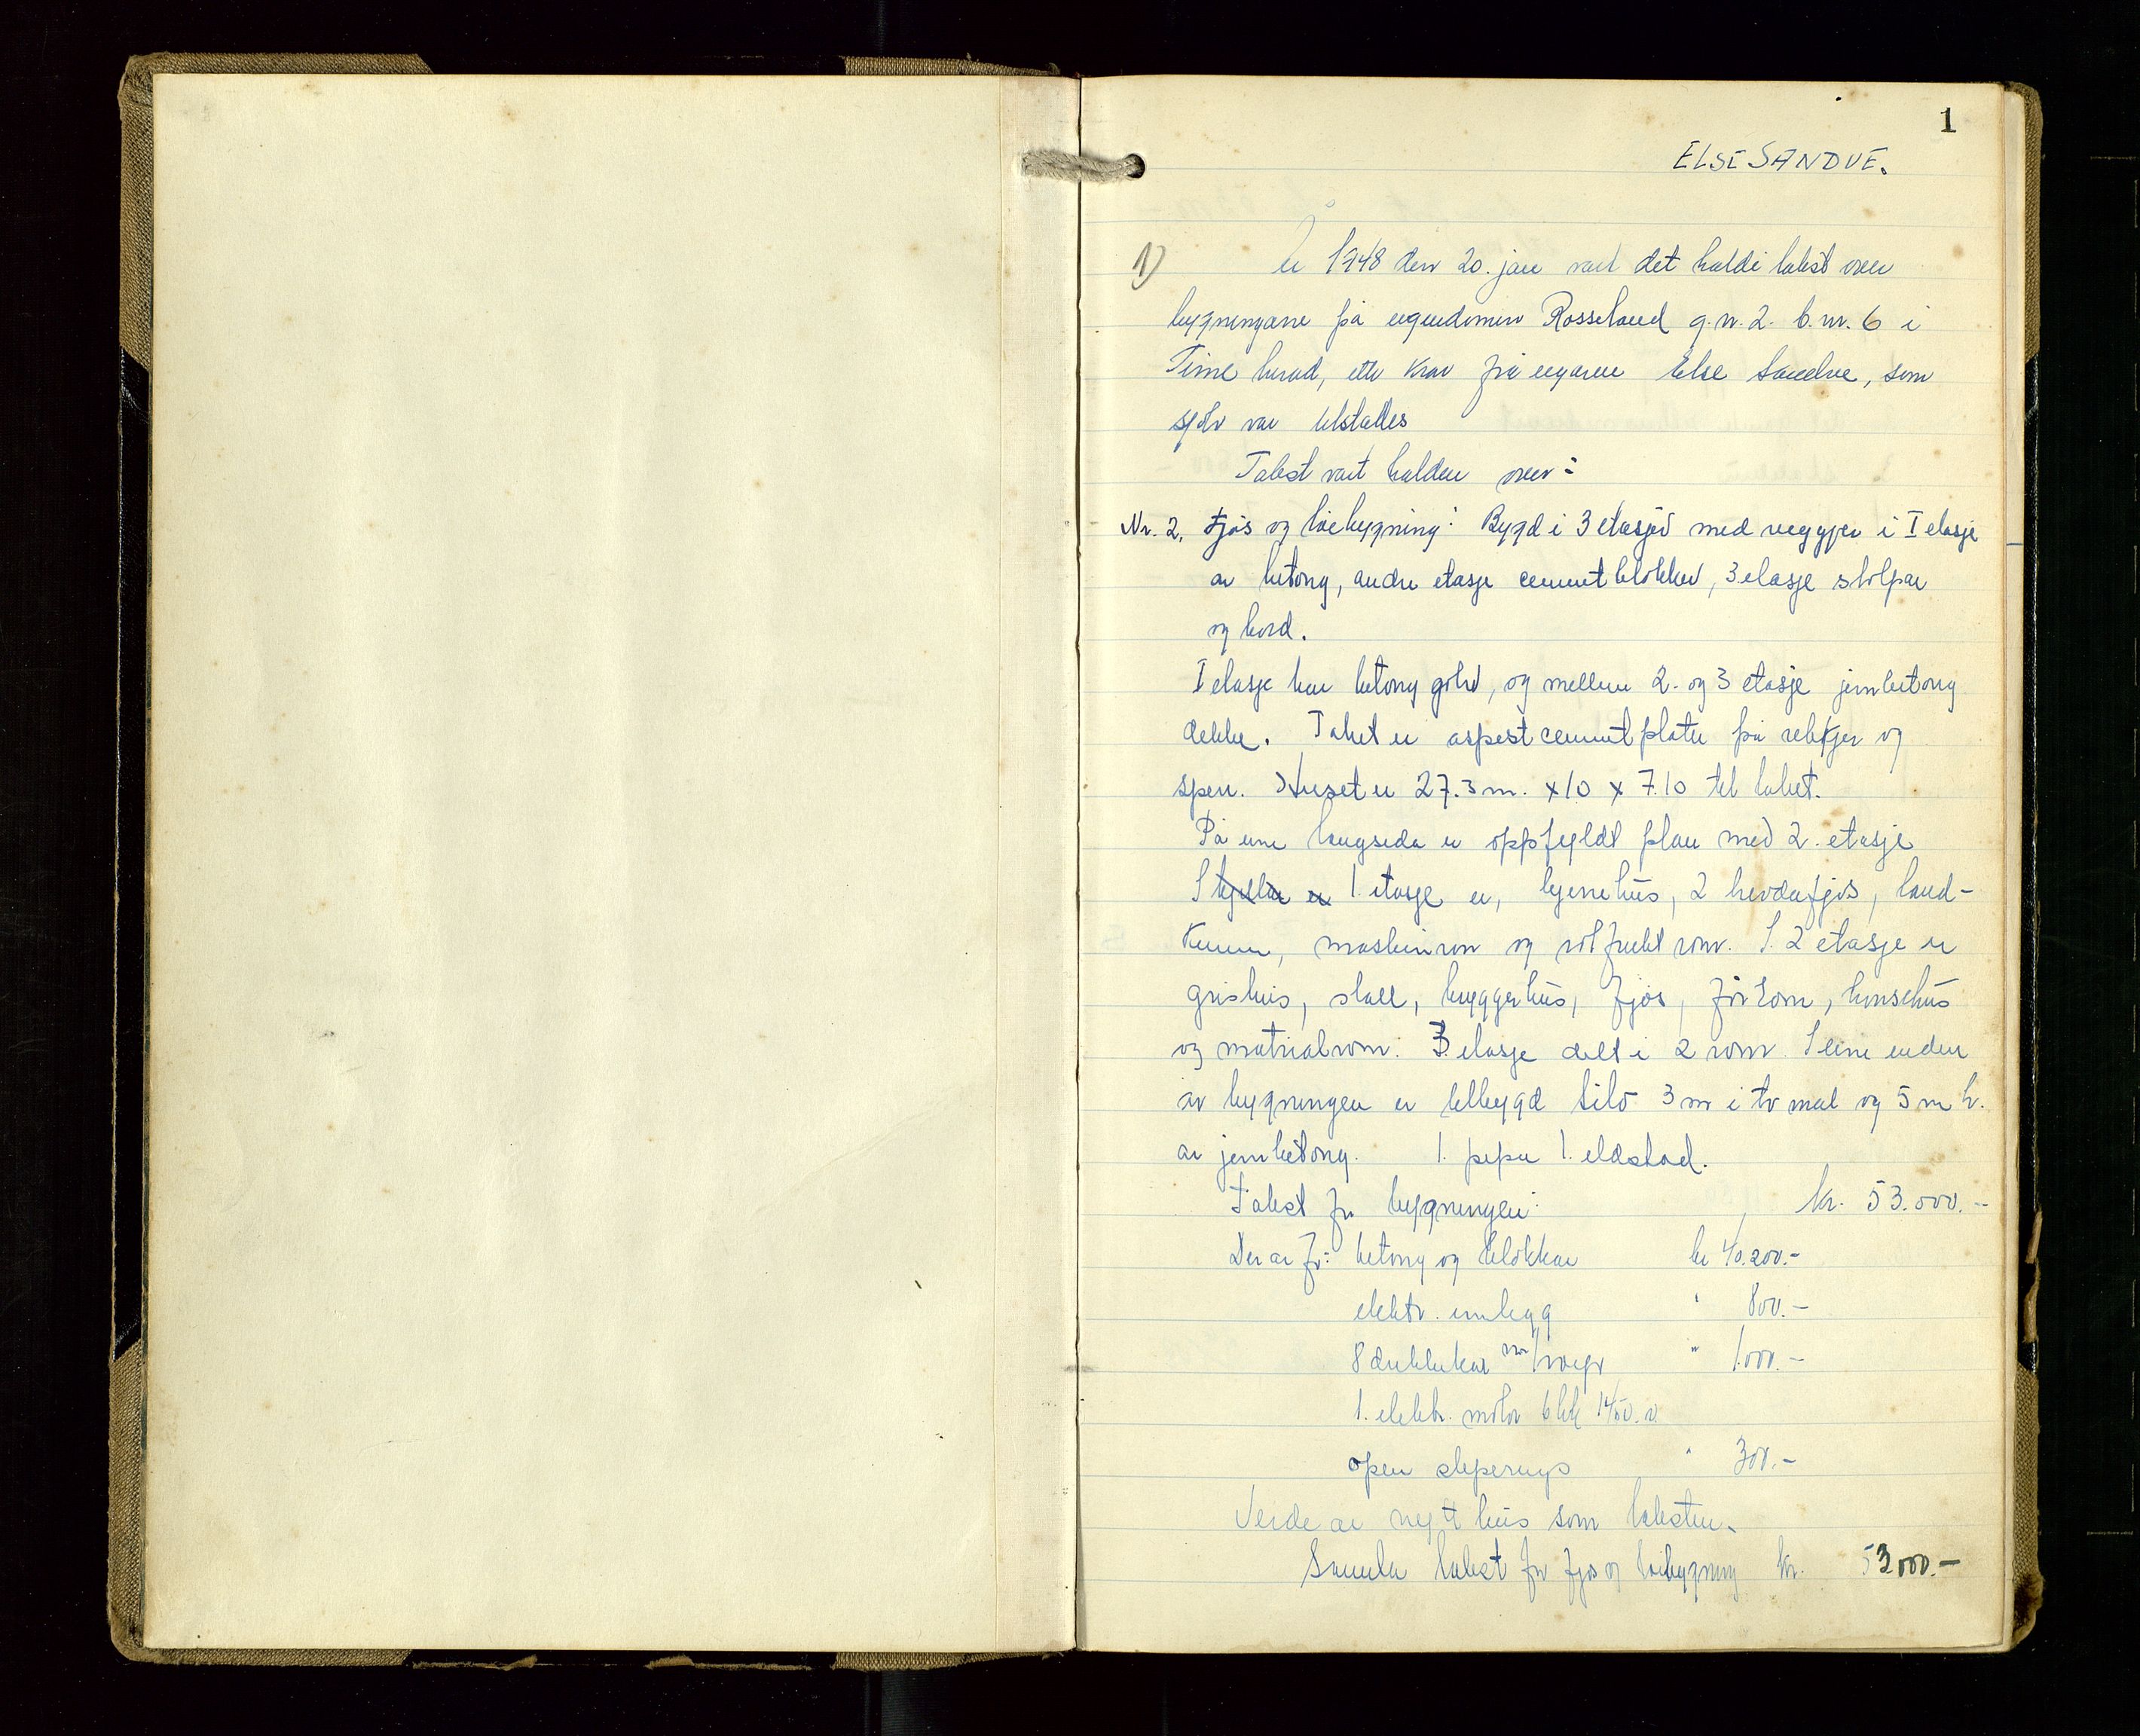 1
ELSE SANDVE.
1) År 1948 den 20. jan vart det haldi takst over
bygningane på eigendomen Rosseland g.n. 2. b.nr. 6 i
Time herad, ette krav frå eigaren Else Sandve, som
sjølv var tilstades
Takst vart halden over:
Nr. 2. Fjøs og løebygning: Bygd i 3 etasjer med vegger i I etasje
av betong, andre etasje cementblokker, 3 etasje stolpar
og bord.
I etasje har betong golv, og mellem 2. og 3 etasje jernbetong
dekke. Taket er aspestcementplater på rekkjer og
sperr. Huset er 27.3 m. x 10 x 7.10 til taket.
På eine langsida er oppfyldt plan med 2. etasje
I kjellar er 1. etasje er, hjennehus, 2 hevdafjøs, land-
kumm, maskinrom og rotfrukt rom. I. 2 etasje er
grishus, stall, bryggerhus, fjøs, fôrrom, hønsehus
og matrialrom. 3. etasje delt i 2 rom. I eine enden
av bygningen er tilbygd silo 3 m i tv mål og 5 m h.
av jernbetong. 1. pipe 1. eldstad.
Takst for bygningen: kr. 53.000.-
Der av for: betong og blokkar kr 40.200.-
elektr. innlegg " 800.-
8 drikkekar m/røyr " 1.000.-
1. elektr. motor 6 hk 1450. o.
open sleperings " 300.-
Verde av nytt hus som taksten.
Samla takst for fjøs og løebygning kr. 53000.-